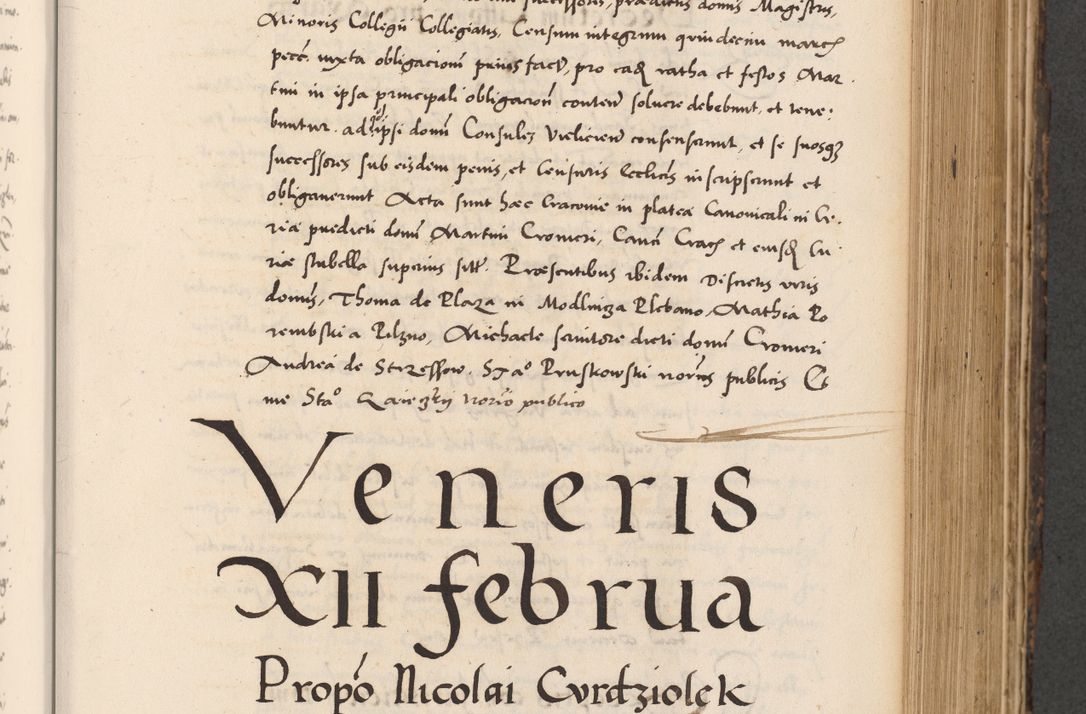 successores, prædictis domis Magistris,
Minoris Collegii Collegiatis, Censum integrum quindecim march
pecc. iuxta obligacionm prius fact, pro eadq ratha et festos Mar
tini in ipsa principali obligacion conten solvere debebunt, et tene-
buntur. ad q ipsi domi Consules Vielicien consenserunt, et se suosq
successores sub eisdem penis, et Censuris Ecclicis inscripserunt et
obligaverunt Acta sunt hæc Cracovie in platea Canonicali in Cu-
riæ predicti domi Martini Cromeri, Canci Crac et eiusdq Cu
riæ stubella superius sitt. Præsentibus ibidem Discretis viris
domis, Thoma de Plaza in Modlnicza Plebano, Mathia Po
rembski a Pilzno, Michaele scriptore dicti domi Cromeri
Andrea de Strzessow. Stao Pruskowski noriis publicis Et
me Stao norio publico
Veneris
XII februa
Propo Nicolai Curdziolek